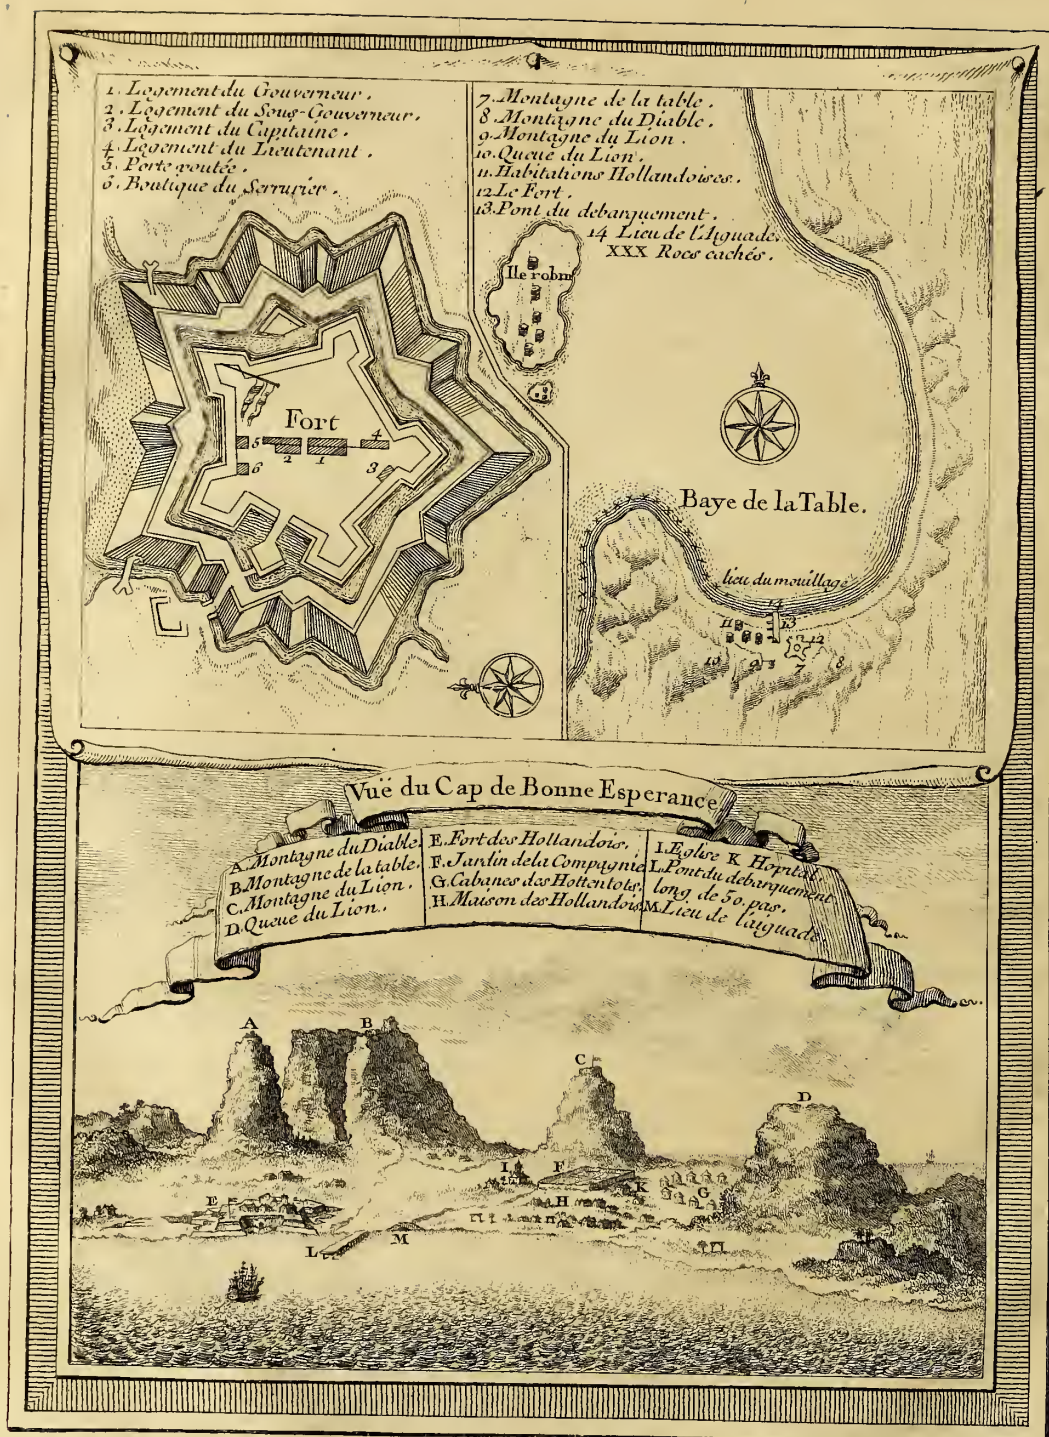 1. Logement du Gouverneur.
2. Logement du Sous-Gouverneur.
3. Logement du Capitaine.
4. Logement du Lieutenant.
5. Porte voutée.
6. Boutique du Serrurier.
7. Montagne de la table.
8. Montagne du Diable.
9. Montagne du Lion.
10. Queue du Lion.
11. Habitations Hollandoises.
12. Le Fort.
13. Pont du debarquement.
14 Lieu de l'Aiguade.
XXX Rocs cachés.
Fort
5 2 1 4
6 3
Ile robin
Baye de la Table.
lieu du mouillage
14
11 13
12
10 9 7 8
Vuë du Cap de Bonne Esperance
A. Montagne du Diable.
B. Montagne de la table.
C. Montagne du Lion.
D. Queue du Lion.
E. Fort des Hollandois.
F. Jardin de la Compagnie
G. Cabanes des Hottentots.
H. Maison des Hollandois
I. Eglise K Hopital
L. Pont du debarquement
long de 50. pas.
M. Lieu de l'aiguade
A B
C
D
I F
K
G
E H
L M